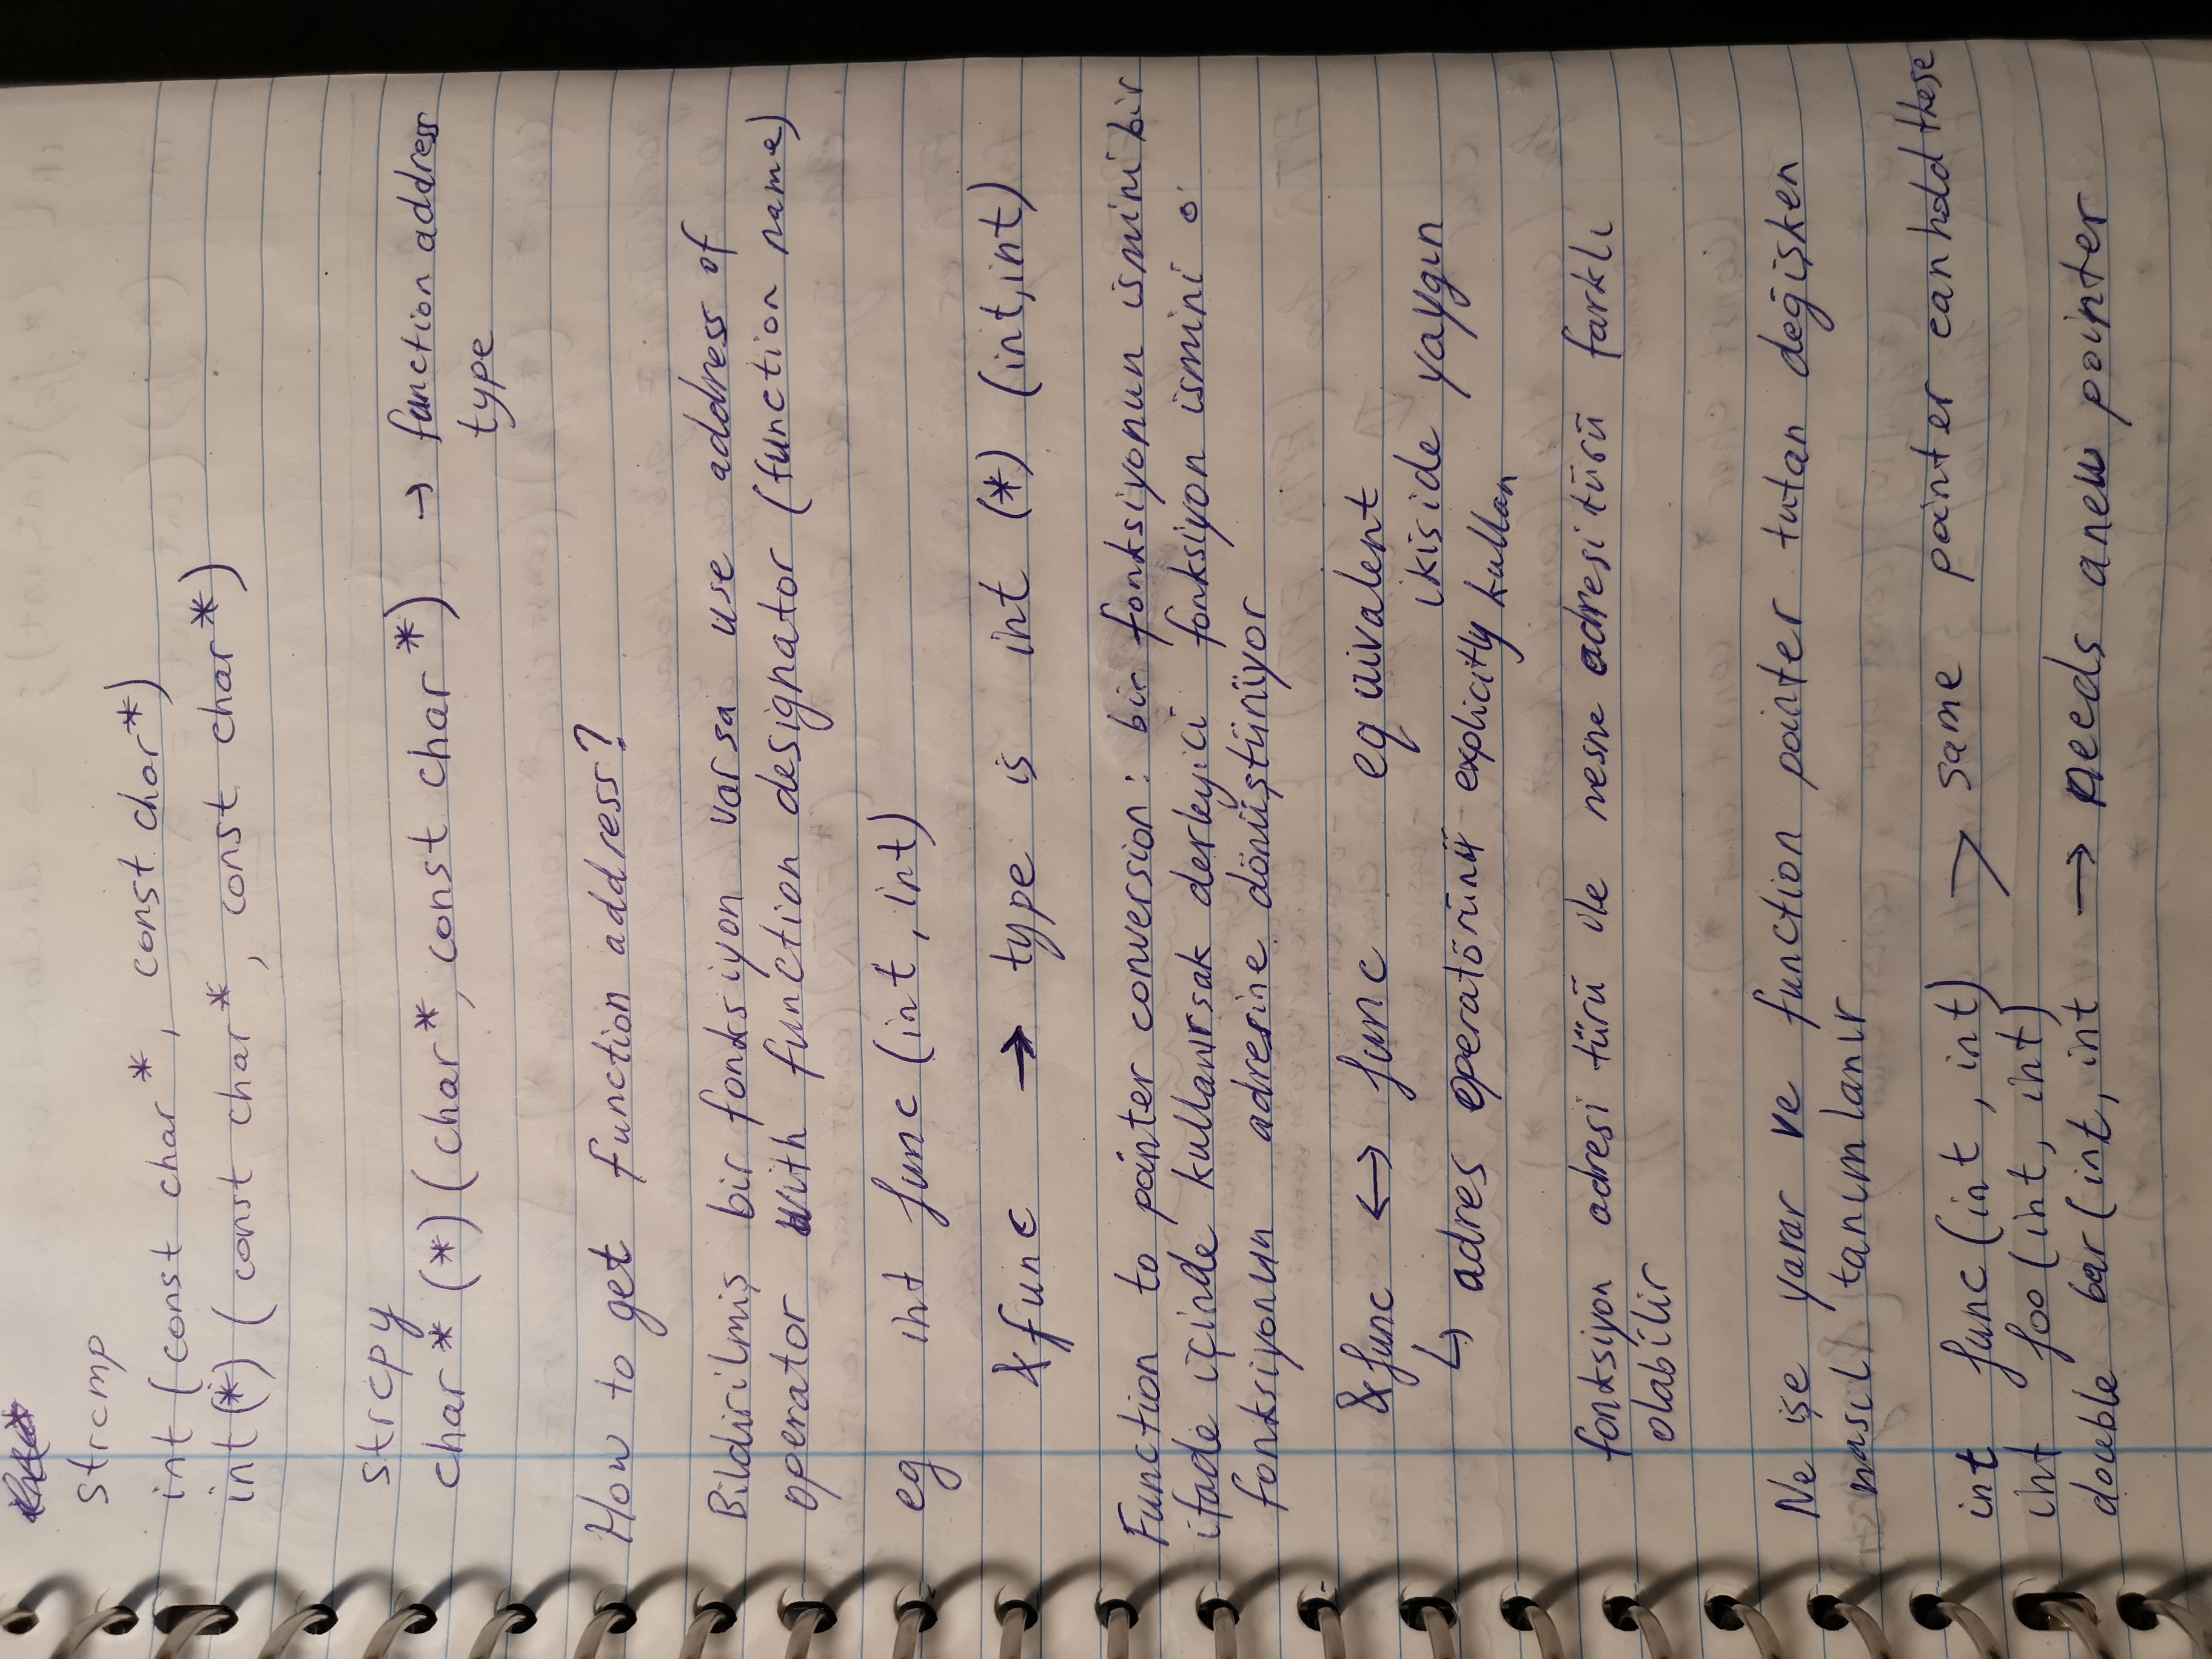 strcmp
int (const char*, const char*)
int(*) (const char*, const char*)
strcpy
char* (*) (char*, const char*) → function address
type
How to get function address?
Bildirilmiş bir fonksiyon varsa use address of
operator with function designator (function name)
eg int func (int, int)
&func → type is int (*) (int,int)
Function to pointer conversion: bir fonksiyonun ismini bir
ifade içinde kullanırsak derleyici fonksiyon ismini o
fonksiyonun adresine dönüştürüyor
&func ↔ func equivalent
ikiside yaygın
↳ adres operatörünü explicitly kullan
fonksiyon adresi türü ile nesne adresi türü farklı
olabilir
Ne işe yarar ve function pointer tutan değişken
nasıl tanımlanır
int func(int, int) > same pointer can hold these
int foo(int, int)
double bar(int, int → needs a new pointer